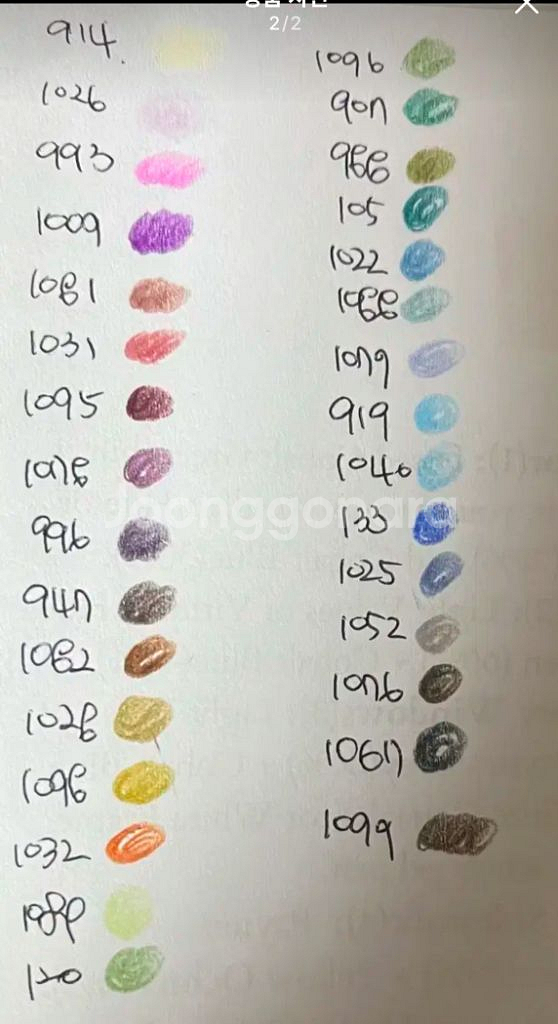 2/2
914.
1026
993
1009
1081
1031
1095
1078
996
947
1082
1028
1098
1032
1089
120
1096
907
988
105
1022
1088
1079
919
1040
133
1025
1052
1076
1067
1099
joonggonara